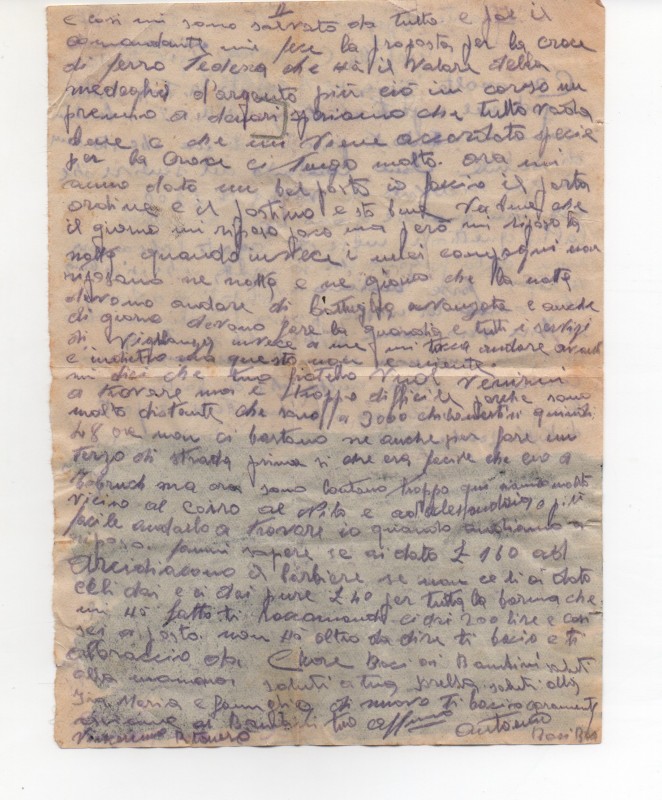 e così mi sono salvato da tutto e poi il
comandante mi fece la proposta per la croce
di ferro Tedesca che ha il valore della
medaglia d'argento più ciò in corso un
premio a speriamo che tutto vada
bene e che mi viene accordato specie
per la Croce ci tengo molto. ora mi
anno dato un bel posto io faccio il porta
ordine e il postino e sto bene che
il giorno mi riposo poco ma però mi riposo la
notte quando invece i miei compagni non
riposano ne notte e ne giorno che la notte
devono andare di avanzata e anche
di giorno devono fare la guardia e tutti i servizi
di invece a me mi tocca andare avanti
e indietro ma questo non è niente.
mi dici che tuo fratello vuol venirmi
a trovare ma è troppo difficile perche sono
molto distante che sono a 3000 chilometri quindi
48 ore non ci bastano ne anche per fare un
terzo di strada prima si che era facile che ero a
Tobruch ma ora sono lontano troppo qui siamo molto
vicino al Cairo al Nilo e ad più
facile andarlo a trovare io quando andiamo a
riposo. fammi sapere se ai dato £ 160 al
Arcidiacono il barbiere se non ce li ai dato
celi dai e ci dai pure £ 40 per tutta la che
mi ha fatto ti raccomando ci dai 200 lire e così
sei a posto. non ho altro da dire ti bacio e ti
abbraccio di Cuore Baci ai Bambini saluti
alla mamma saluti a tua saluti alla
Maria e famiglia di nuovo ti bacio caramente
ai tuo aff.mo
Antonio
Baci